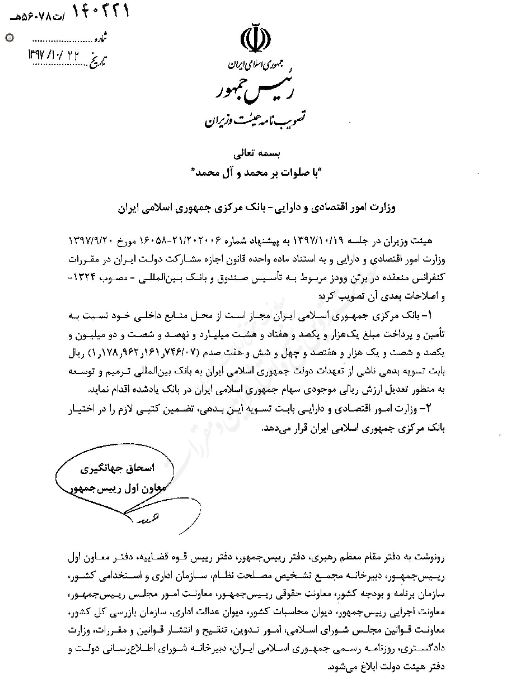 ۱۴۰۲۲۱/ت۵۶۰۷۸هـ
شماره
تاریخ ۱۳۹۷/۱۰/۲۲
جمهوری اسلامی ایران
رئیس جمهور
تصویب نامه هیئت وزیران
بسمه تعالی
"با صلوات بر محمد و آل محمد"
وزارت امور اقتصادی و دارایی - بانک مرکزی جمهوری اسلامی ایران
هیئت وزیران در جلسه ۱۳۹۷/۱۰/۱۹ به پیشنهاد شماره ۲۱/۲۰۲۰۰۶-۱۶۰۵۸ مورخ ۱۳۹۷/۹/۲۰
وزارت امور اقتصادی و دارایی و به استناد ماده واحده قانون اجازه مشارکت دولت ایران در مقررات
کنفرانس منعقده در برتن وودز مربوط به تأسیس صندوق و بانک بین‌المللی - مصوب ۱۳۲۴-
و اصلاحات بعدی آن تصویب کرد:
۱- بانک مرکزی جمهوری اسلامی ایران مجاز است از محل منابع داخلی خود نسبت به
تأمین و پرداخت مبلغ یک‌هزار و یکصد و هفتاد و هشت میلیارد و نهصد و شصت و دو میلیون و
یکصد و شصت و یک هزار و هفتصد و چهل و شش و هفت صدم (۱,۱۷۸,۹۶۲,۱۶۱,۷۴۶/۰۷) ریال
بابت تسویه بدهی ناشی از تعهدات دولت جمهوری اسلامی ایران به بانک بین‌المللی ترمیم و توسعه
به منظور تعدیل ارزش ریالی موجودی سهام جمهوری اسلامی ایران در بانک یادشده اقدام نماید.
۲- وزارت امور اقتصادی و دارایی بابت تسویه این بدهی، تضمین کتبی لازم را در اختیار
بانک مرکزی جمهوری اسلامی ایران قرار می‌دهد.
اسحاق جهانگیری
معاون اول رییس‌جمهور
رونوشت به دفتر مقام معظم رهبری، دفتر رییس‌جمهور، دفتر رییس قوه قضاییه، دفتر معاون اول
رییس‌جمهور، دبیرخانه مجمع تشخیص مصلحت نظام، سازمان اداری و استخدامی کشور،
سازمان برنامه و بودجه کشور، معاونت حقوقی رییس‌جمهور، معاونت امور مجلس رییس‌جمهور،
معاونت اجرایی رییس‌جمهور، دیوان محاسبات کشور، دیوان عدالت اداری، سازمان بازرسی کل کشور،
معاونت قوانین مجلس شورای اسلامی، امور تدوین، تنقیح و انتشار قوانین و مقررات، وزارت
دادگستری، روزنامه رسمی جمهوری اسلامی ایران، دبیرخانه شورای اطلاع‌رسانی دولت و
دفتر هیئت دولت ابلاغ می‌شود.